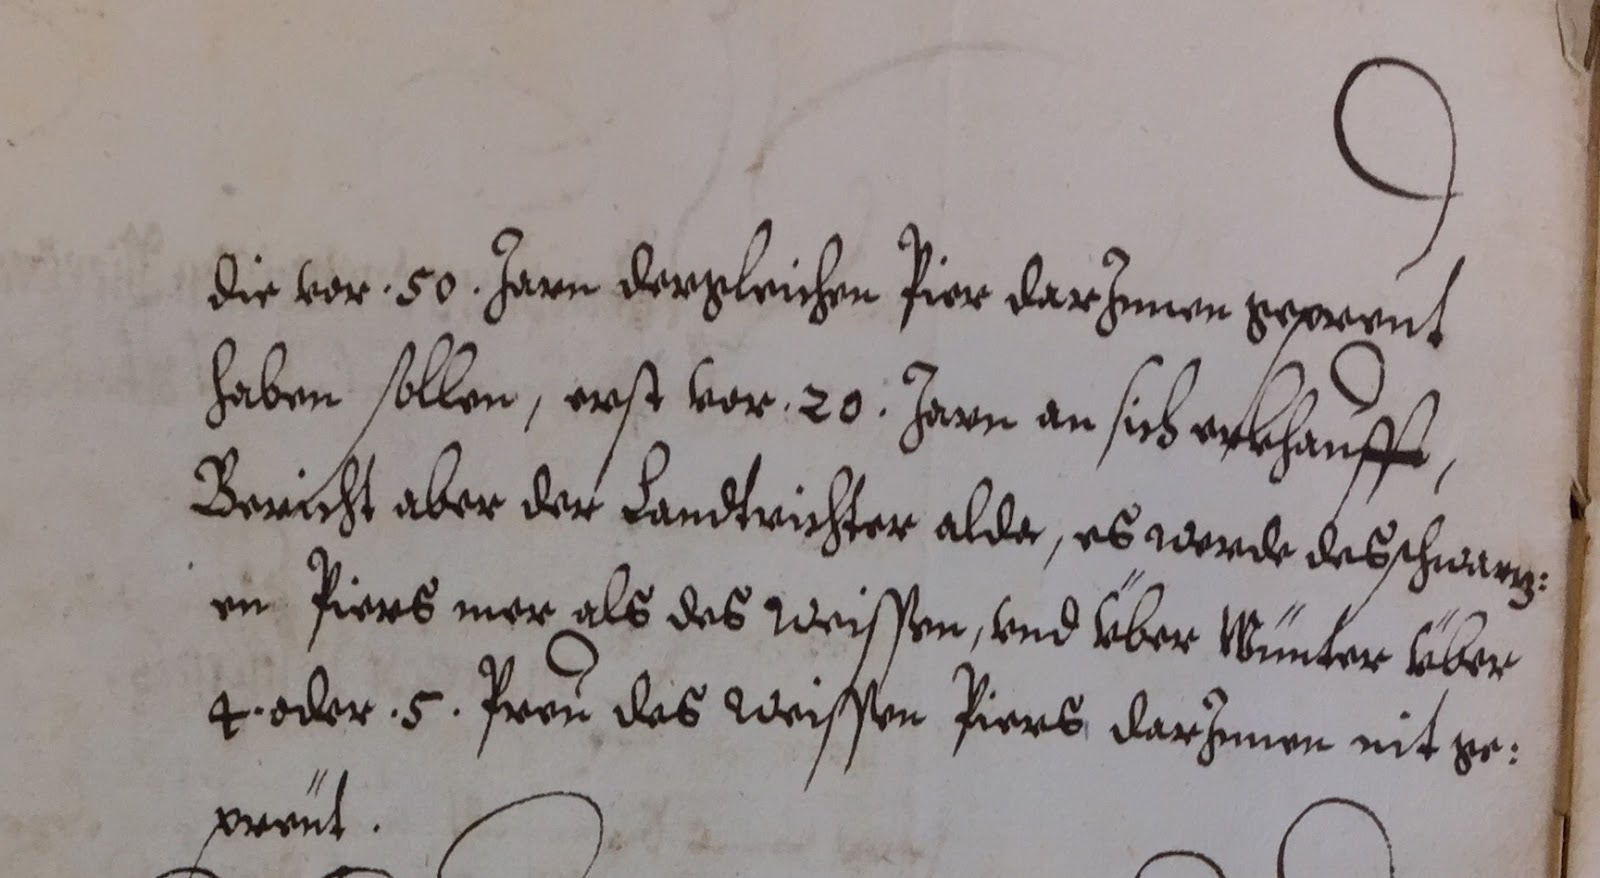 die vor .50. Jarn dergleichen Pier darJnnen gepreut
haben sollen, erst vor .20. Jarn an sich erkhaufft,
Bericht aber der Landtrichter alda, es werde des schwarz:
en Piers mer als des Weissen, vnd über Wünter über
4. oder .5. Preu des Weissen Piers darJnnen nit ge:
preüt.